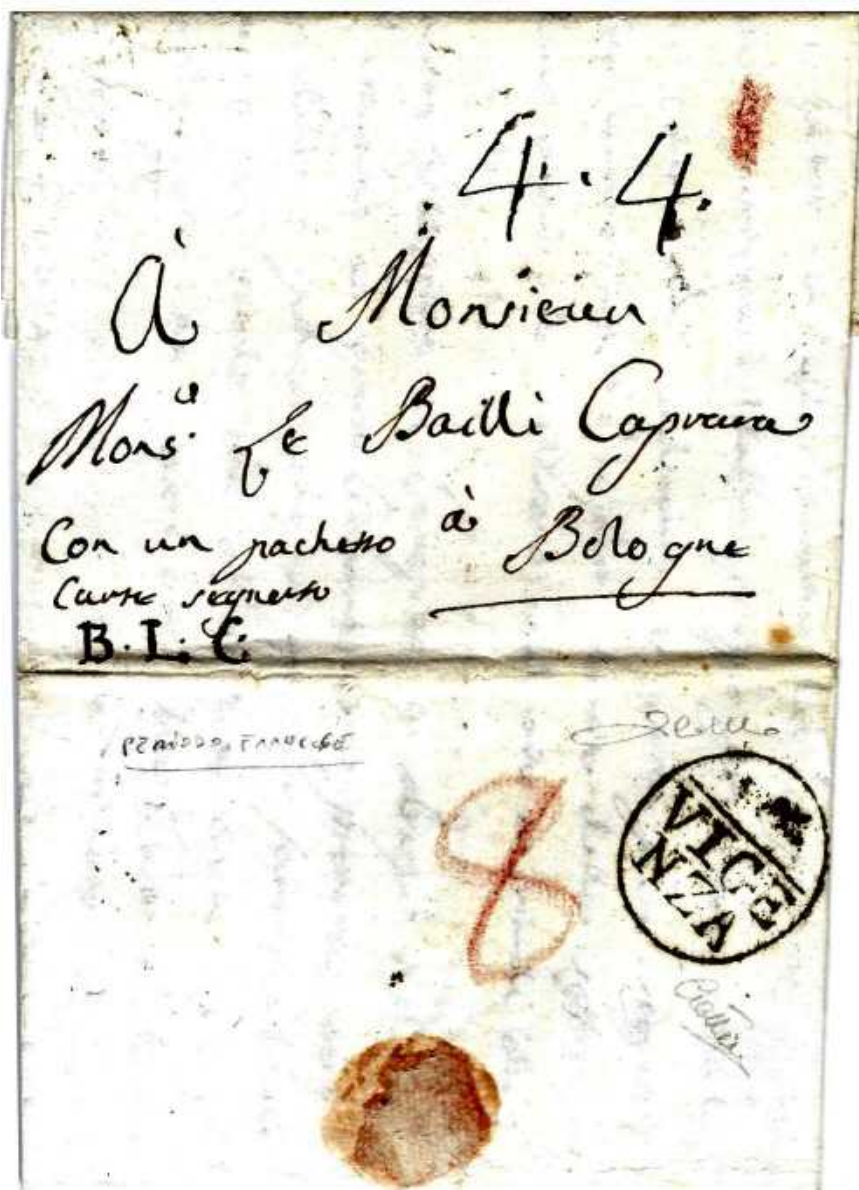 4.4.
À Monsieur
Mons.r Le Bailli Caprara
à Bologne
Con un pachetto
Carte segnato
B. L. C.
PERIODO FRANCESE
8
VICE
NZA